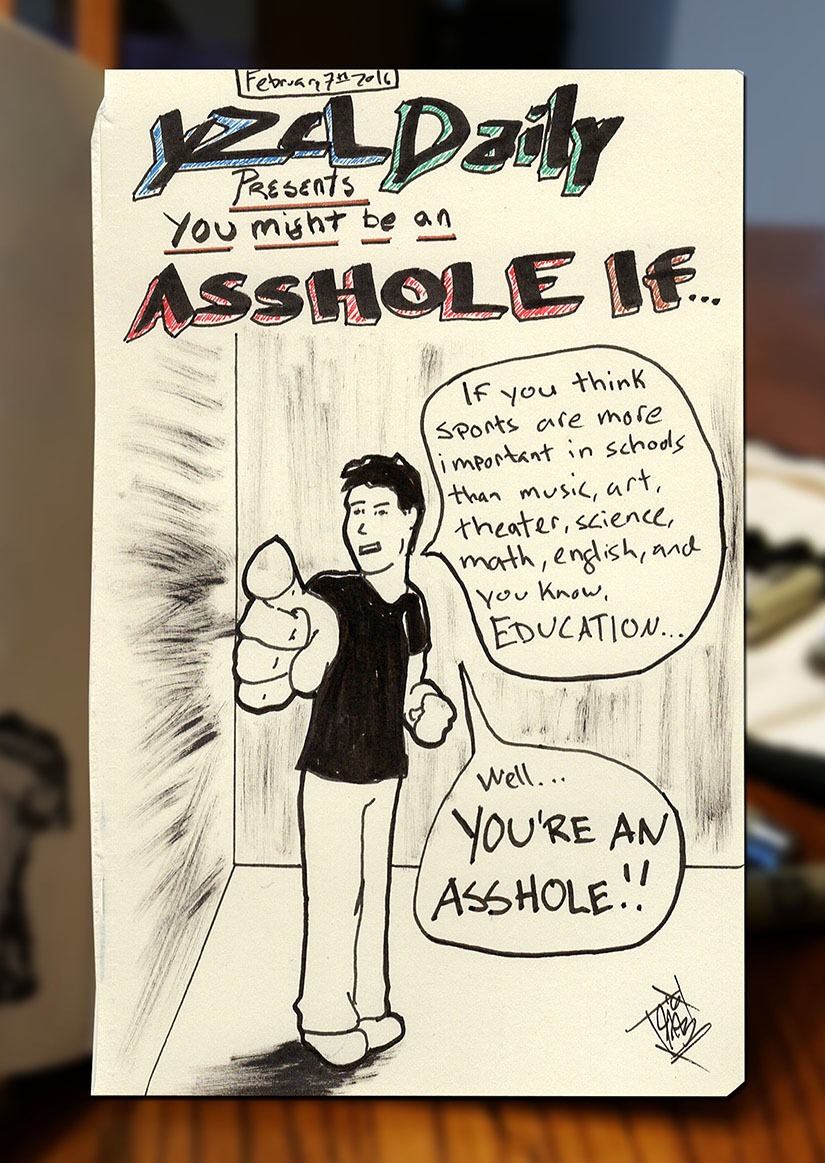 February 7th 2016
YZD Daily
PRESENTS
You might be an
ASSHOLE IF...
If you think
sports are more
important in schools
than music, art,
theater, science,
math, english, and
you know,
EDUCATION...
Well...
YOU'RE AN
ASSHOLE!!